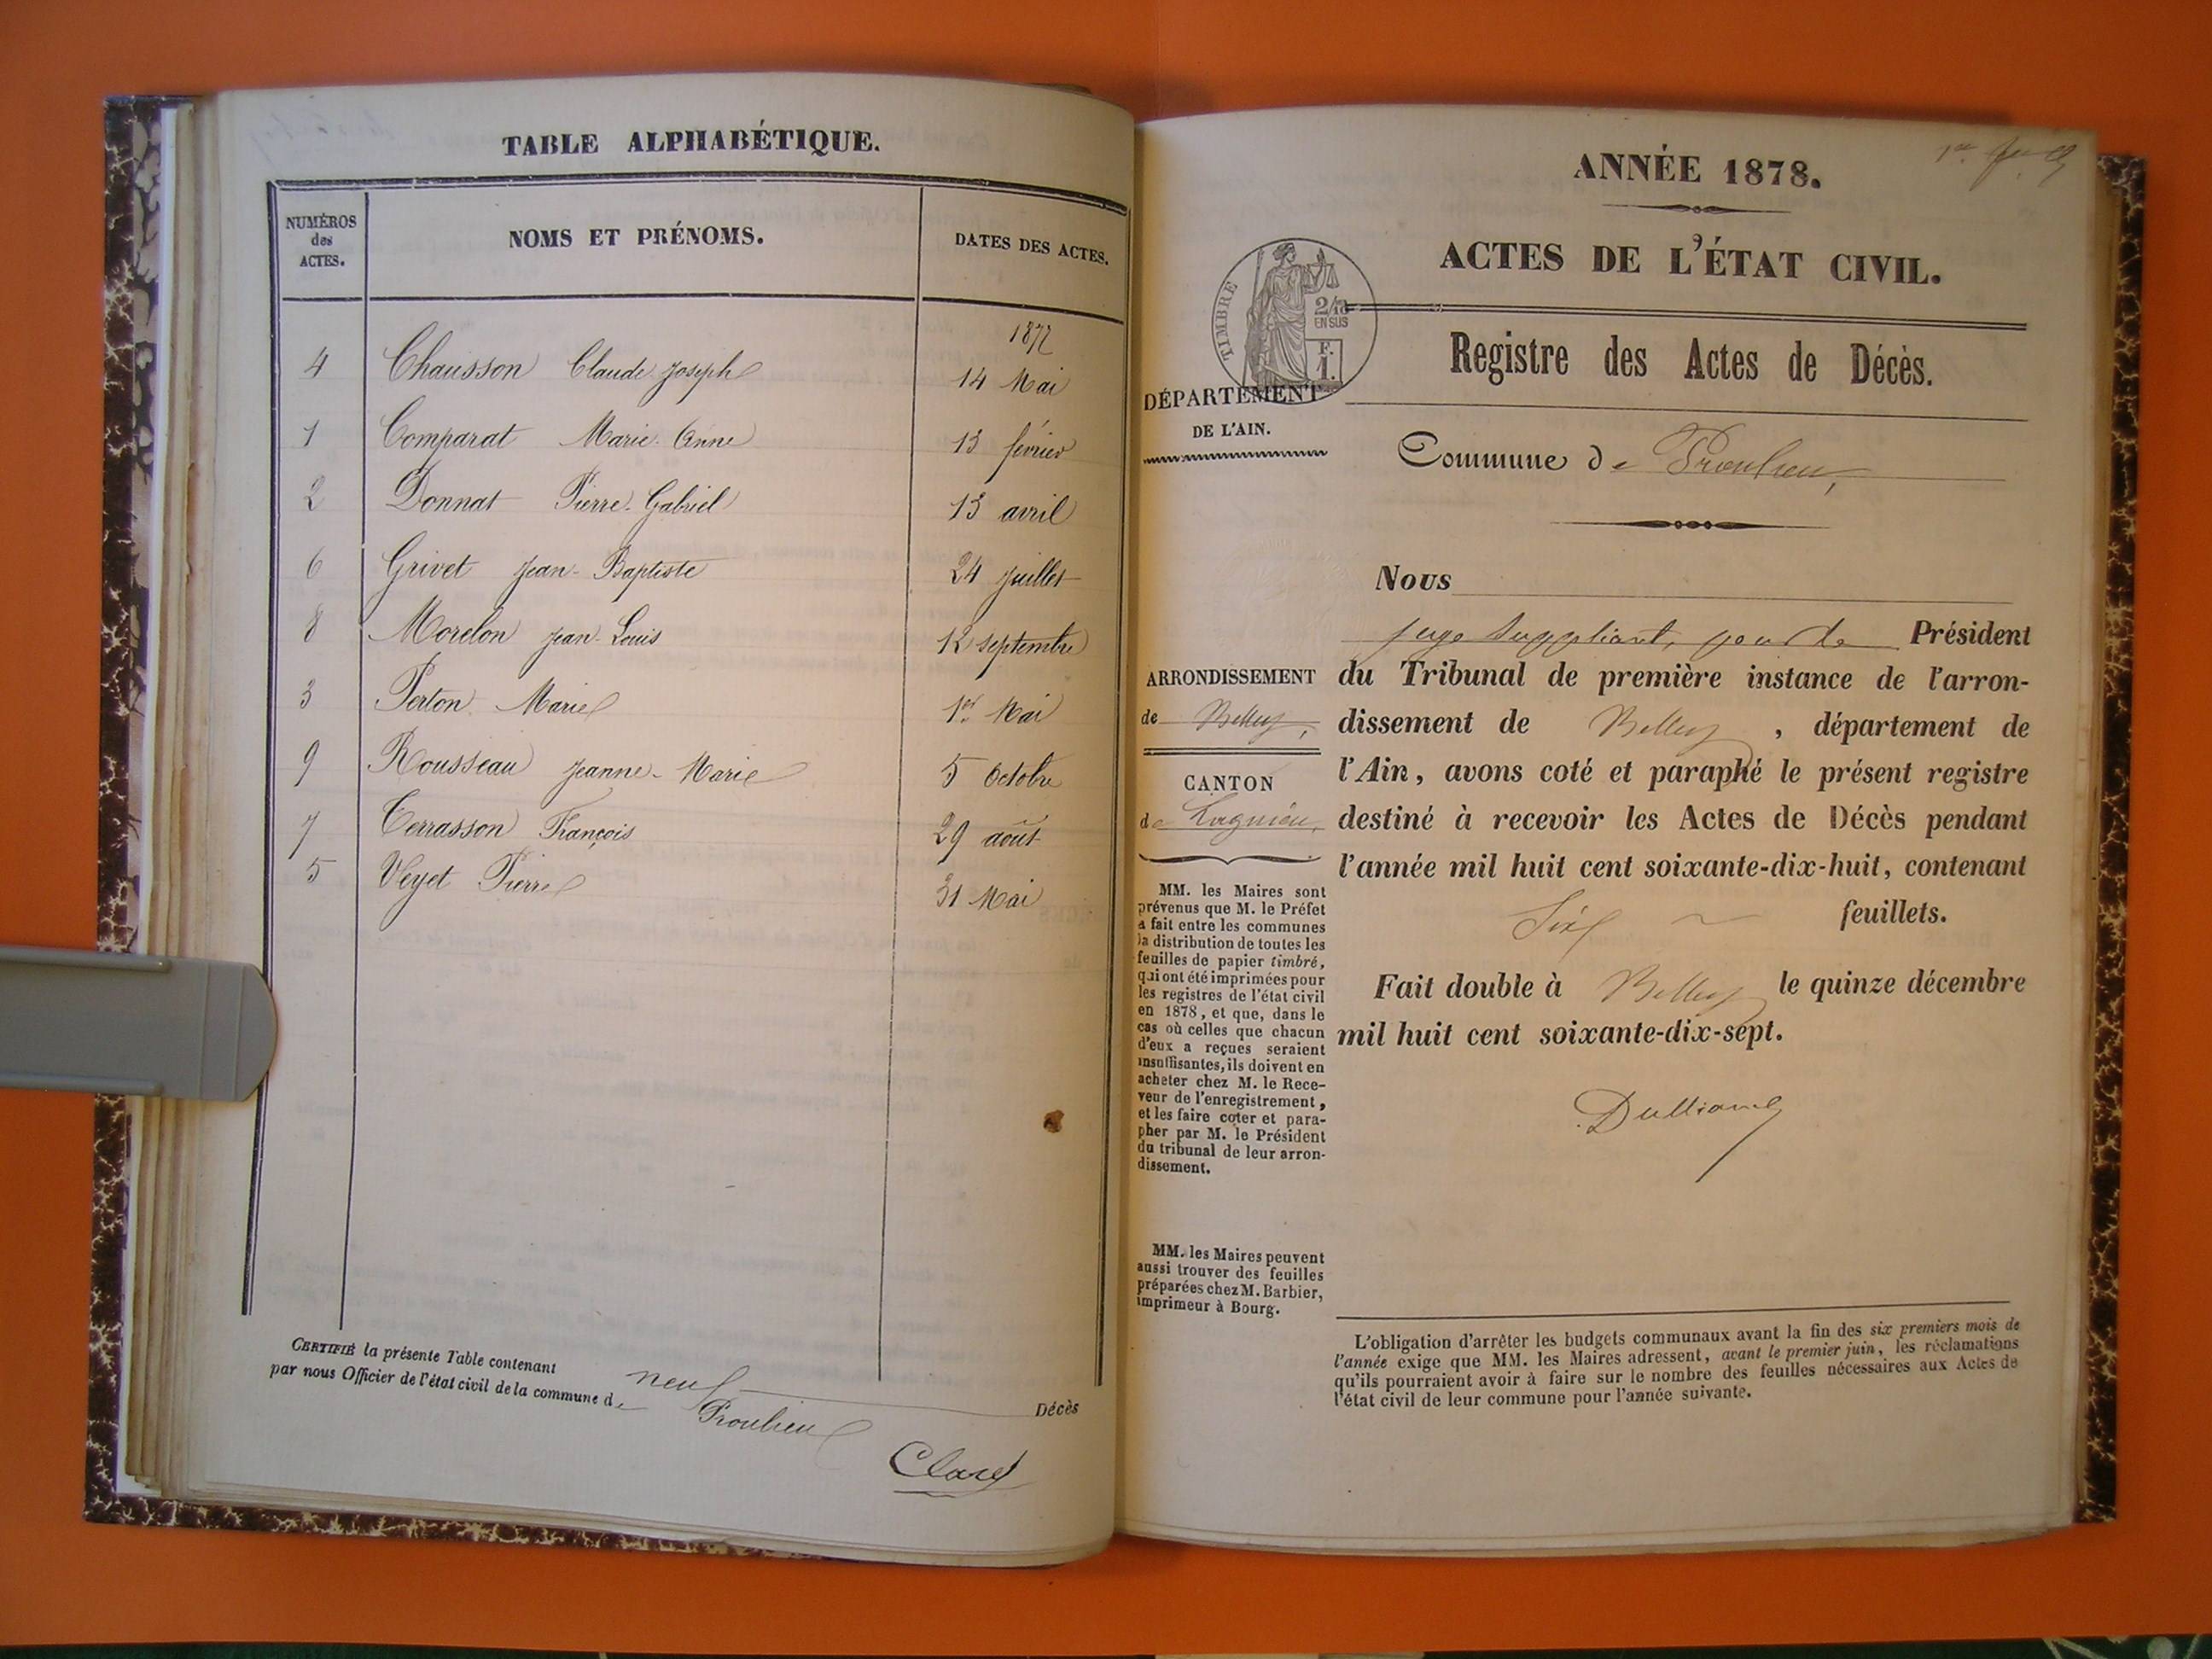 TABLE ALPHABÉTIQUE.
NUMÉROS des ACTES.
NOMS ET PRÉNOMS.
DATES DES ACTES.
1877
4 Chausson Claude Joseph 14 Mai
1 Comparat Marie Anne 13 février
2 Donnat Pierre Gabriel 13 avril
6 Grivet Jean-Baptiste 24 juillet
8 Morelon Jean-Louis 12 septembre
3 Perton Marie 1er Mai
9 Rousseau Jeanne-Marie 5 Octobre
7 Terrasson François 29 août
5 Veyet Pierre 31 Mai
CERTIFIÉ la présente Table contenant neuf Décès
par nous Officier de l'état civil de la commune de Proulieu
Claret
ANNÉE 1878.
ACTES DE L'ÉTAT CIVIL.
TIMBRE
2/10
EN SUS
F.
1.
Registre des Actes de Décès.
DÉPARTEMENT
DE L'AIN.
Commune de Proulieu,
Nous
juge suppléant, pour le Président
du Tribunal de première instance de l'arron-
dissement de Belley, département de
l'Ain, avons coté et paraphé le présent registre
destiné à recevoir les Actes de Décès pendant
l'année mil huit cent soixante-dix-huit, contenant
Six feuillets.
Fait double à Belley le quinze décembre
mil huit cent soixante-dix-sept.
ARRONDISSEMENT
de Belley,
CANTON
de Lagnieu,
MM. les Maires sont
prévenus que M. le Préfet
a fait entre les communes
la distribution de toutes les
feuilles de papier timbré,
qui ont été imprimées pour
les registres de l'état civil
en 1878, et que, dans le
cas où celles que chacun
d'eux a reçues seraient
insuffisantes, ils doivent en
acheter chez M. le Rece-
veur de l'enregistrement,
et les faire coter et para-
pher par M. le Président
du tribunal de leur arron-
dissement.
MM. les Maires peuvent
aussi trouver des feuilles
préparées chez M. Barbier,
imprimeur à Bourg.
L'obligation d'arrêter les budgets communaux avant la fin des six premiers mois de
l'année exige que MM. les Maires adressent, avant le premier juin, les réclamations
qu'ils pourraient avoir à faire sur le nombre des feuilles nécessaires aux Actes de
l'état civil de leur commune pour l'année suivante.